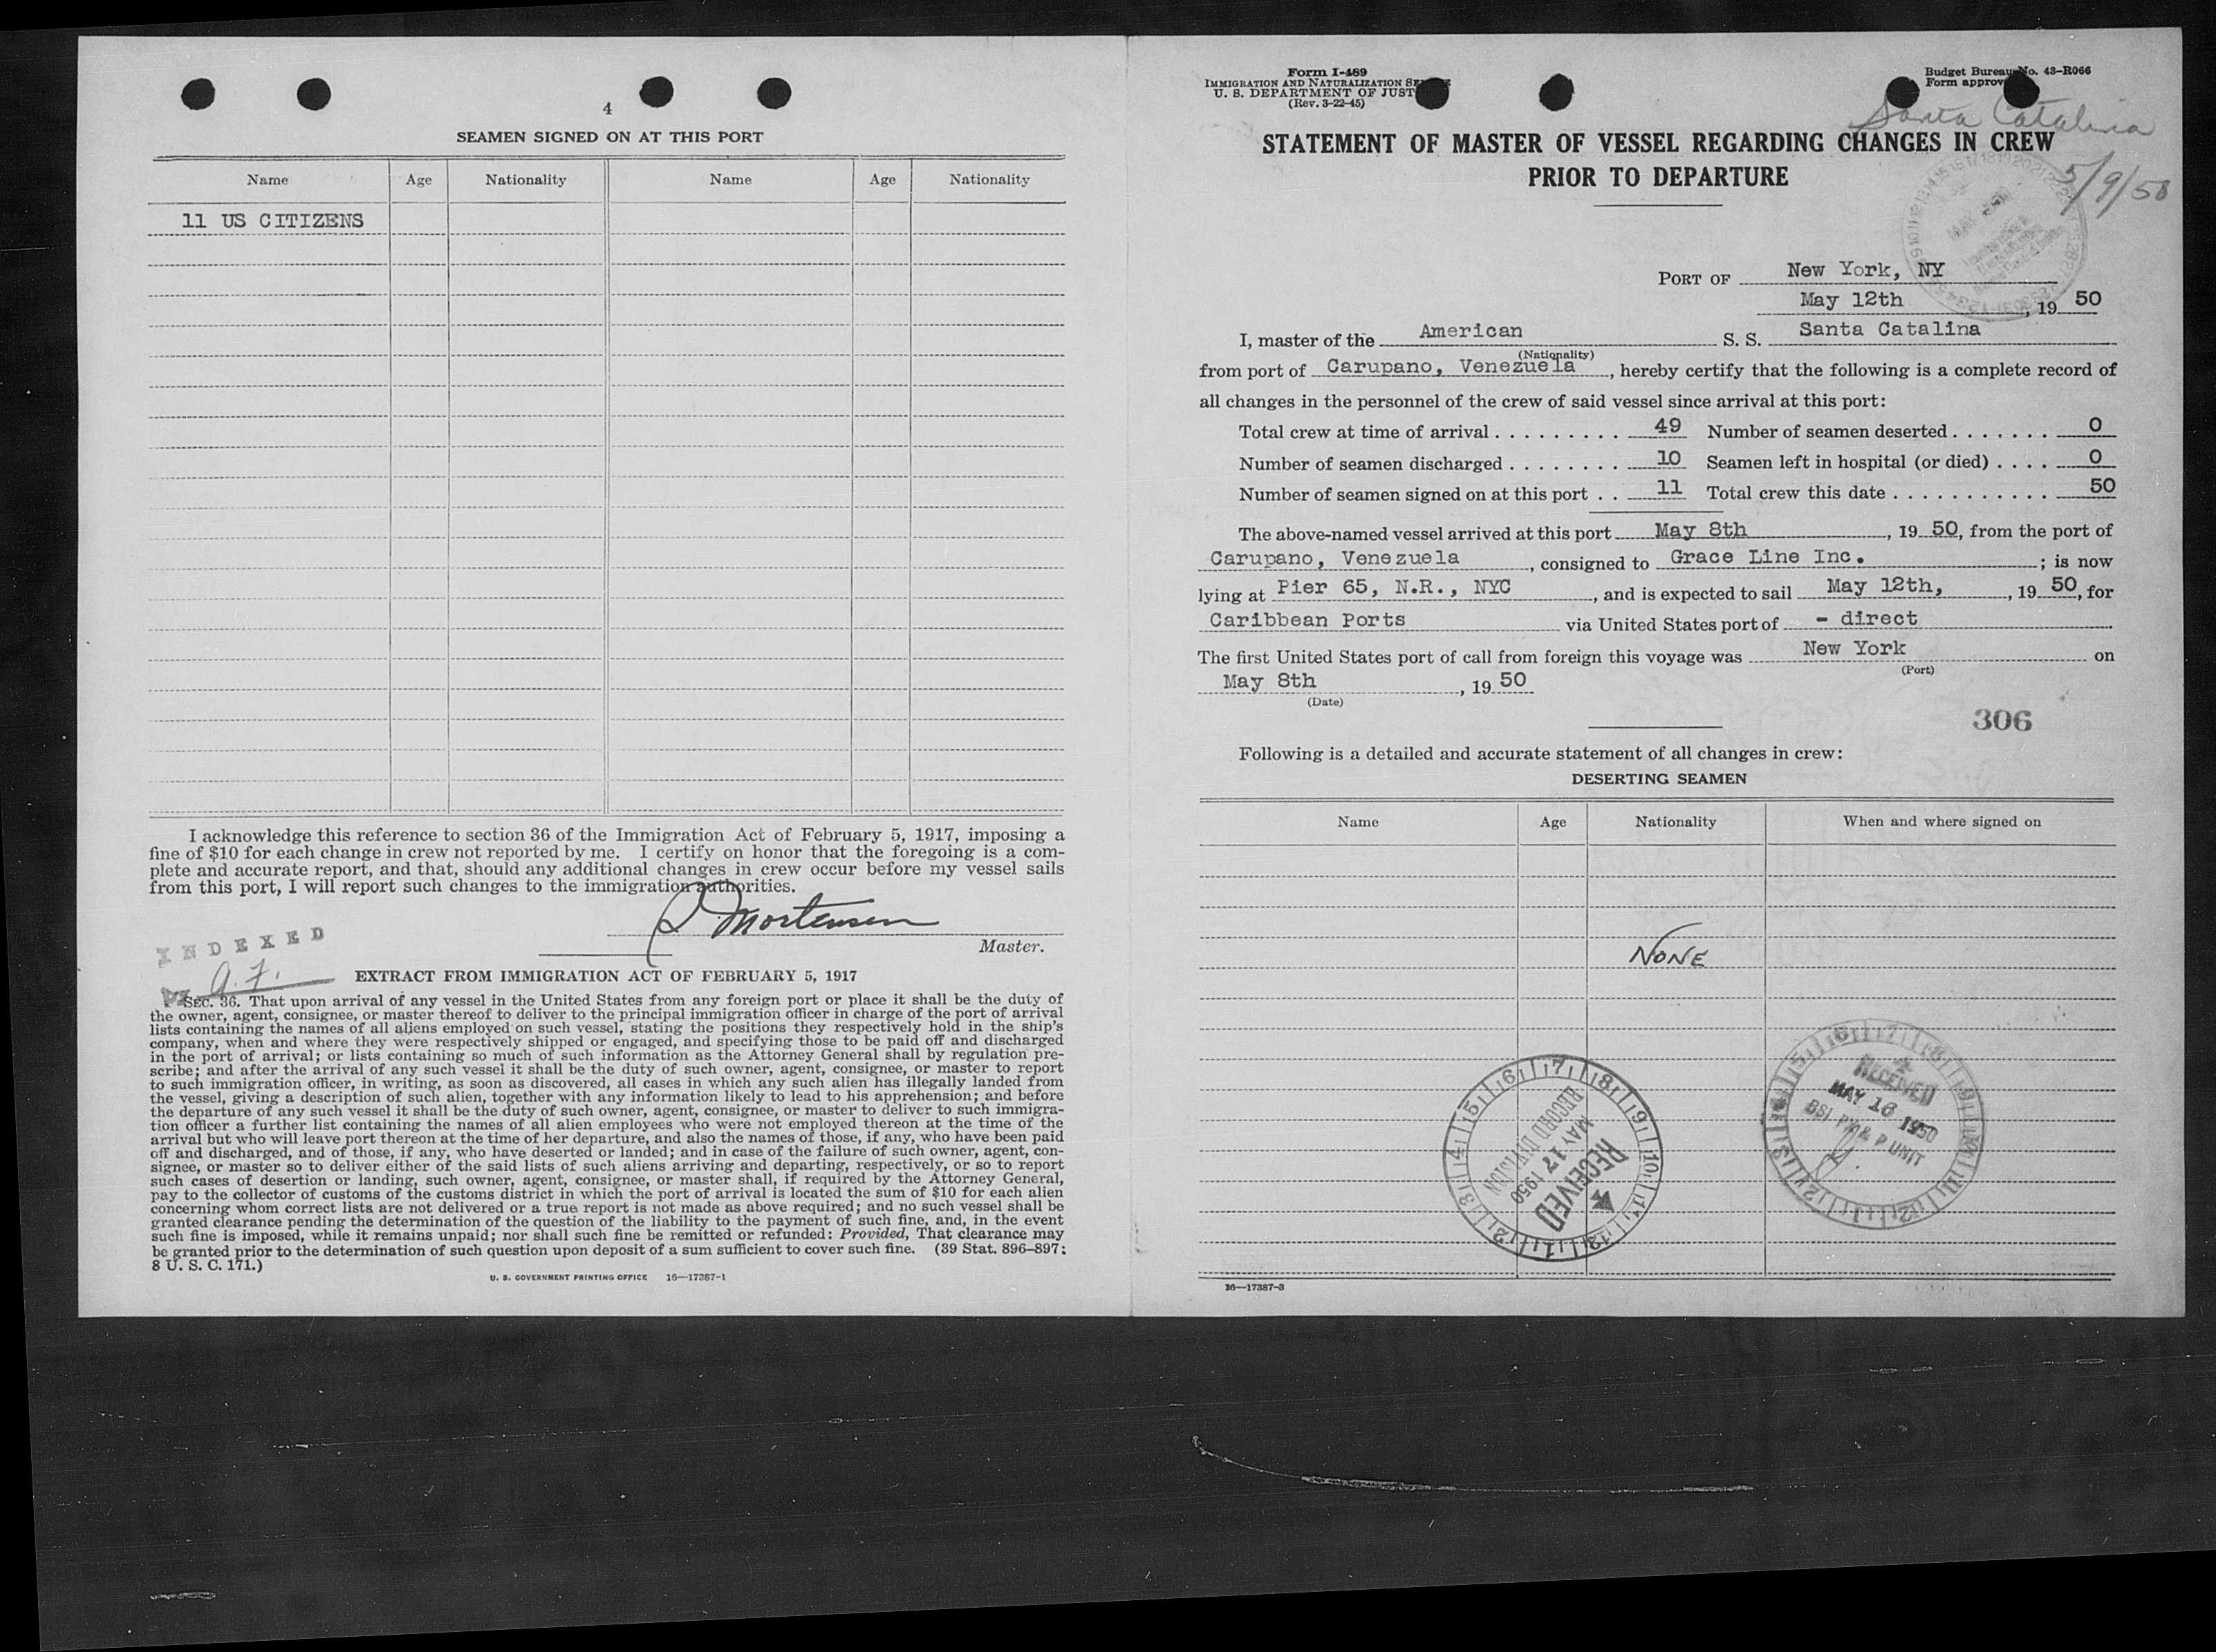 4
SEAMEN SIGNED ON AT THIS PORT
Name Age Nationality Name Age Nationality
11 US CITIZENS
I acknowledge this reference to section 36 of the Immigration Act of February 5, 1917, imposing a
fine of $10 for each change in crew not reported by me. I certify on honor that the foregoing is a com-
plete and accurate report, and that, should any additional changes in crew occur before my vessel sails
from this port, I will report such changes to the immigration authorities.
Mortensen
Master.
INDEXED
A.F.
EXTRACT FROM IMMIGRATION ACT OF FEBRUARY 5, 1917
SEC. 36. That upon arrival of any vessel in the United States from any foreign port or place it shall be the duty of
the owner, agent, consignee, or master thereof to deliver to the principal immigration officer in charge of the port of arrival
lists containing the names of all aliens employed on such vessel, stating the positions they respectively hold in the ship's
company, when and where they were respectively shipped or engaged, and specifying those to be paid off and discharged
in the port of arrival; or lists containing so much of such information as the Attorney General shall by regulation pre-
scribe; and after the arrival of any such vessel it shall be the duty of such owner, agent, consignee, or master to report
to such immigration officer, in writing, as soon as discovered, all cases in which any such alien has illegally landed from
the vessel, giving a description of such alien, together with any information likely to lead to his apprehension; and before
the departure of any such vessel it shall be the duty of such owner, agent, consignee, or master to deliver to such immigra-
tion officer a further list containing the names of all alien employees who were not employed thereon at the time of the
arrival but who will leave port thereon at the time of her departure, and also the names of those, if any, who have been paid
off and discharged, and of those, if any, who have deserted or landed; and in case of the failure of such owner, agent, con-
signee, or master so to deliver either of the said lists of such aliens arriving and departing, respectively, or so to report
such cases of desertion or landing, such owner, agent, consignee, or master shall, if required by the Attorney General,
pay to the collector of customs of the customs district in which the port of arrival is located the sum of $10 for each alien
concerning whom correct lists are not delivered or a true report is not made as above required; and no such vessel shall be
granted clearance pending the determination of the question of the liability to the payment of such fine, and, in the event
such fine is imposed, while it remains unpaid; nor shall such fine be remitted or refunded: Provided, That clearance may
be granted prior to the determination of such question upon deposit of a sum sufficient to cover such fine. (39 Stat. 896–897;
8 U. S. C. 171.)
U. S. GOVERNMENT PRINTING OFFICE 16—17387-1
Form I-489
IMMIGRATION AND NATURALIZATION
U. S. DEPARTMENT OF JUST
(Rev. 3-22-45)
Budget Bureau No. 43-R066
Form approv
Santa Catalina
5/9/50
STATEMENT OF MASTER OF VESSEL REGARDING CHANGES IN CREW
PRIOR TO DEPARTURE
PORT OF New York, NY
May 12th, 19 50
I, master of the American S. S. Santa Catalina
(Nationality)
from port of Carupano, Venezuela, hereby certify that the following is a complete record of
all changes in the personnel of the crew of said vessel since arrival at this port:
Total crew at time of arrival . . . . . . . . . 49 Number of seamen deserted . . . . . . . 0
Number of seamen discharged . . . . . . . . 10 Seamen left in hospital (or died) . . . . 0
Number of seamen signed on at this port . . 11 Total crew this date . . . . . . . . . . . 50
The above-named vessel arrived at this port May 8th, 19 50, from the port of
Carupano, Venezuela, consigned to Grace Line Inc. ; is now
lying at Pier 65, N.R., NYC, and is expected to sail May 12th, , 19 50, for
Caribbean Ports via United States port of - direct
The first United States port of call from foreign this voyage was New York on
(Port)
May 8th, 19 50
(Date)
306
Following is a detailed and accurate statement of all changes in crew:
DESERTING SEAMEN
Name Age Nationality When and where signed on
NONE
RECEIVED
MAY 17 1950
RECORD DIVISION
RECEIVED
MAY 16 1950
BSI P UNIT
16—17387-3